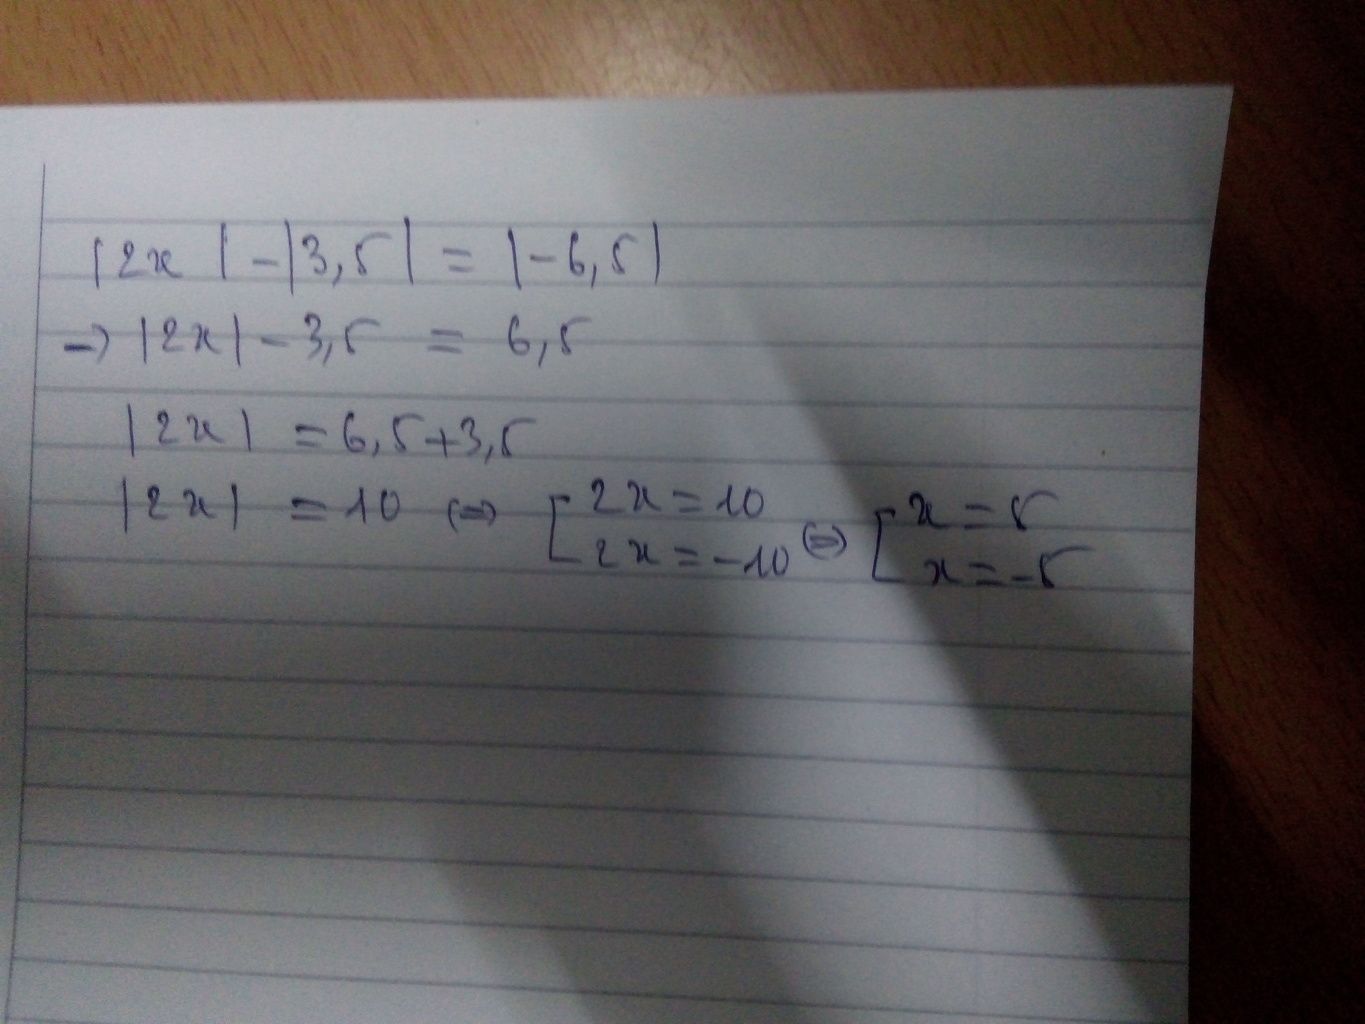 |2x| - |3,5| = |-6,5|
→ |2x| - 3,5 = 6,5
|2x| = 6,5+3,5
|2x| = 10 (=) [ 2x = 10 (=) [ x = 5
2x = -10 x = -5